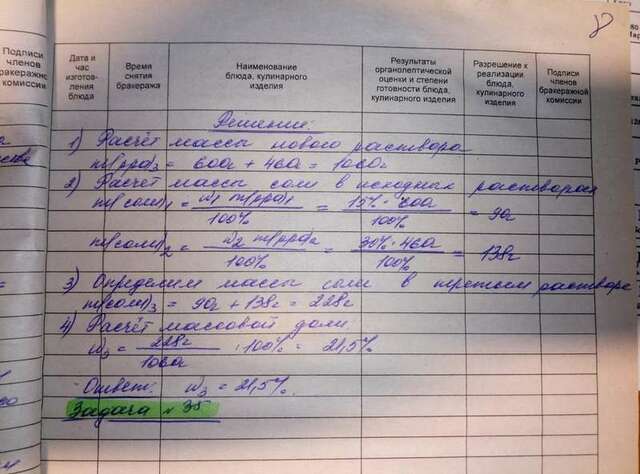 Подписи
членов
бракеражной
комиссии
Дата и
час
изготов-
ления
блюда
Время
снятия
бракеража
Наименование
блюда, кулинарного
изделия
Результаты
органолептической
оценки и степени
готовности блюда,
кулинарного изделия
Разрешение к
реализации
блюда,
кулинарного
изделия
Подписи
членов
бракеражной
комиссии
Решение:
1) Расчёт массы нового раствора
m(рра)3 = 600г + 460г = 1060г
2) Расчёт массы соли в исходных растворах
m(соли)1 = w1 m(рра)1 / 100% = 15% · 600 / 100% = 90г
m(соли)2 = w2 m(рра)2 / 100% = 30% · 460 / 100% = 138г
3) Определим массы соли в третьем растворе
m(соли)3 = 90г + 138г = 228г
4) Расчёт массовой доли
w3 = 228г / 1060г · 100% = 21,5%
Ответ: w3 = 21,5%.
Задача № 35